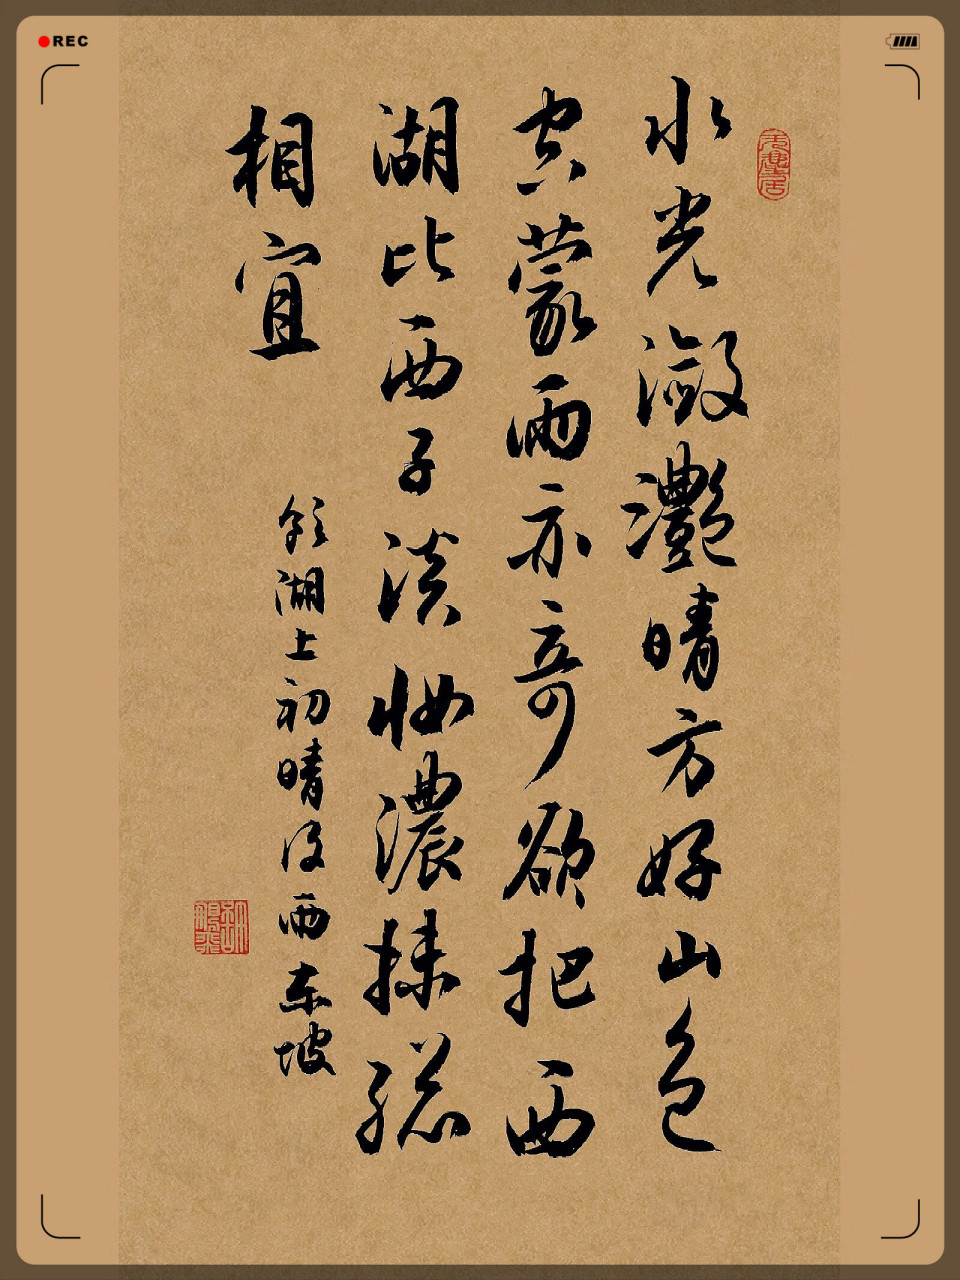 REC
水光瀲灧晴方好山色
空蒙雨亦奇欲把西
湖比西子淡妝濃抹總
相宜
飲湖上初晴後雨東坡